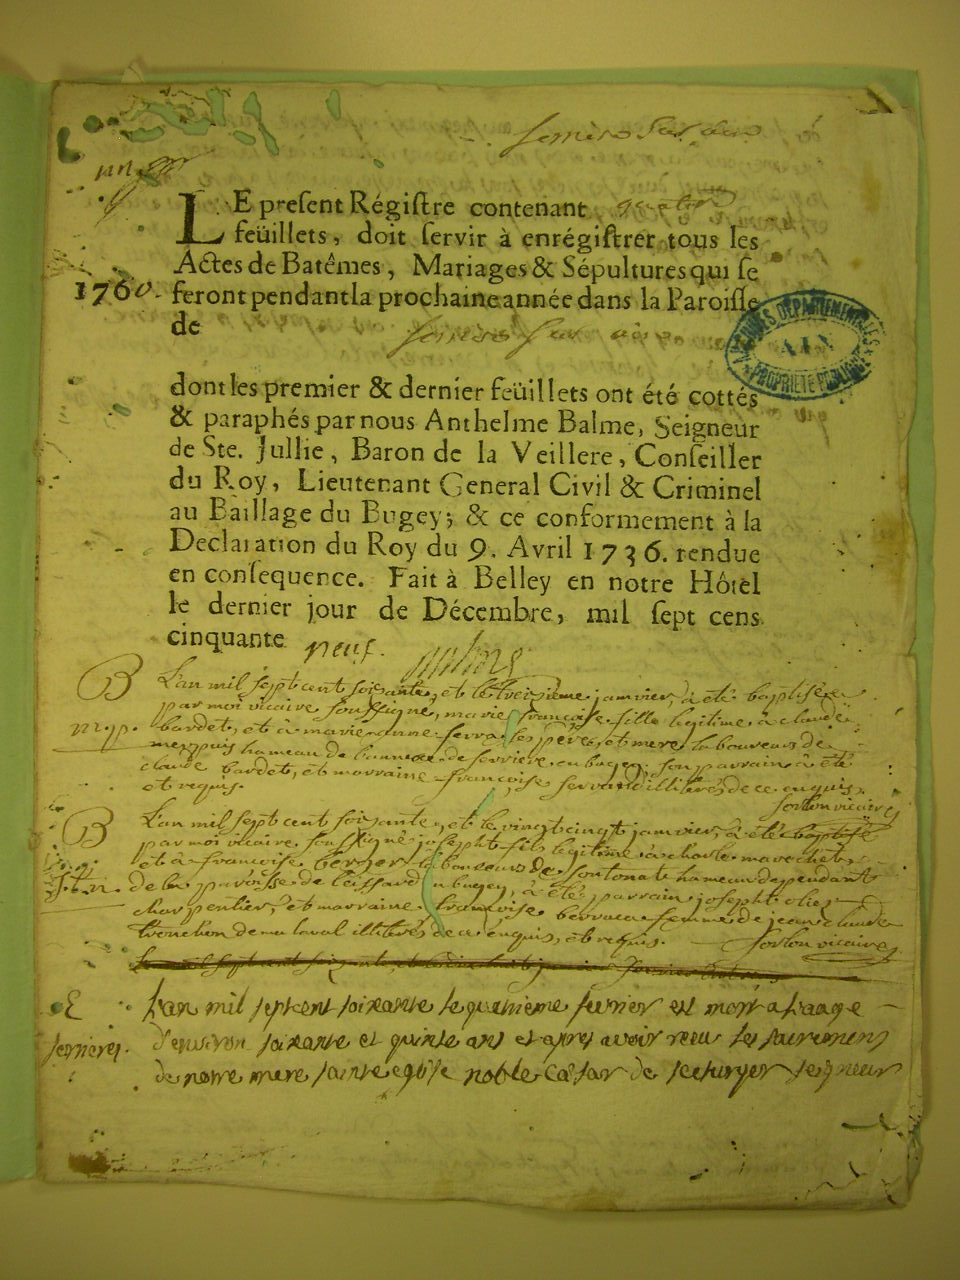 serriere sur ain
LE preſent Régiſtre contenant quatre
feüillets, doit ſervir à enrégiſtrer tous les
Actes de Batêmes, Mariages & Sépultures qui ſe
1760. feront pendant la prochaine année dans la Paroiſſe
de serriere sur ain
ARCHIVES DÉPARTEMENTALES
AIN
PROPRIÉTÉ PUBLIQUE
dont les premier & dernier feüillets ont été cottés
& paraphés par nous Anthelme Balme, Seigneur
de Ste. Jullie, Baron de la Veillere, Conſeiller
du Roy, Lieutenant General Civil & Criminel
au Bailliage du Bugey; & ce conformement à la
Declaration du Roy du 9. Avril 1736. rendue
en conſequence. Fait à Belley en notre Hôtel
le dernier jour de Décembre, mil ſept cens
cinquante neuf.
B L'an mil sept cent soixante, et le treizieme janvier, à été baptisée
par moi vicaire soussigné, marie françoise fille legitime à claude
bardet, et à marie anne serra les père, et mere laboureurs de
hameau de serriere en bugey son parrain à été
claude bardet, et marraine françoise servand illiterés de ce enquis,
et requis.
sorlon vicaire
B L'an mil sept cent soixante, et le vingt cinq janvier, à été baptisé
par moi vicaire soussigné joseph fils legitime à charle marechet,
et à françoise berger laboureurs de hameau dependant
de la paroisse de leissard en bugey, à été parrain joseph
charpentier, et marraine françoise femme de jean claude
de illiterés de ce enquis, et requis. sorlon vicaire
E L'an mil sept cent soixante le quatrieme fevrier est mort a l'aage
serrieres. d'environ soixante et quinse ans et apres avoir receu les sacremens
de notre mere sainte eglise noble Cæsar de seigneur